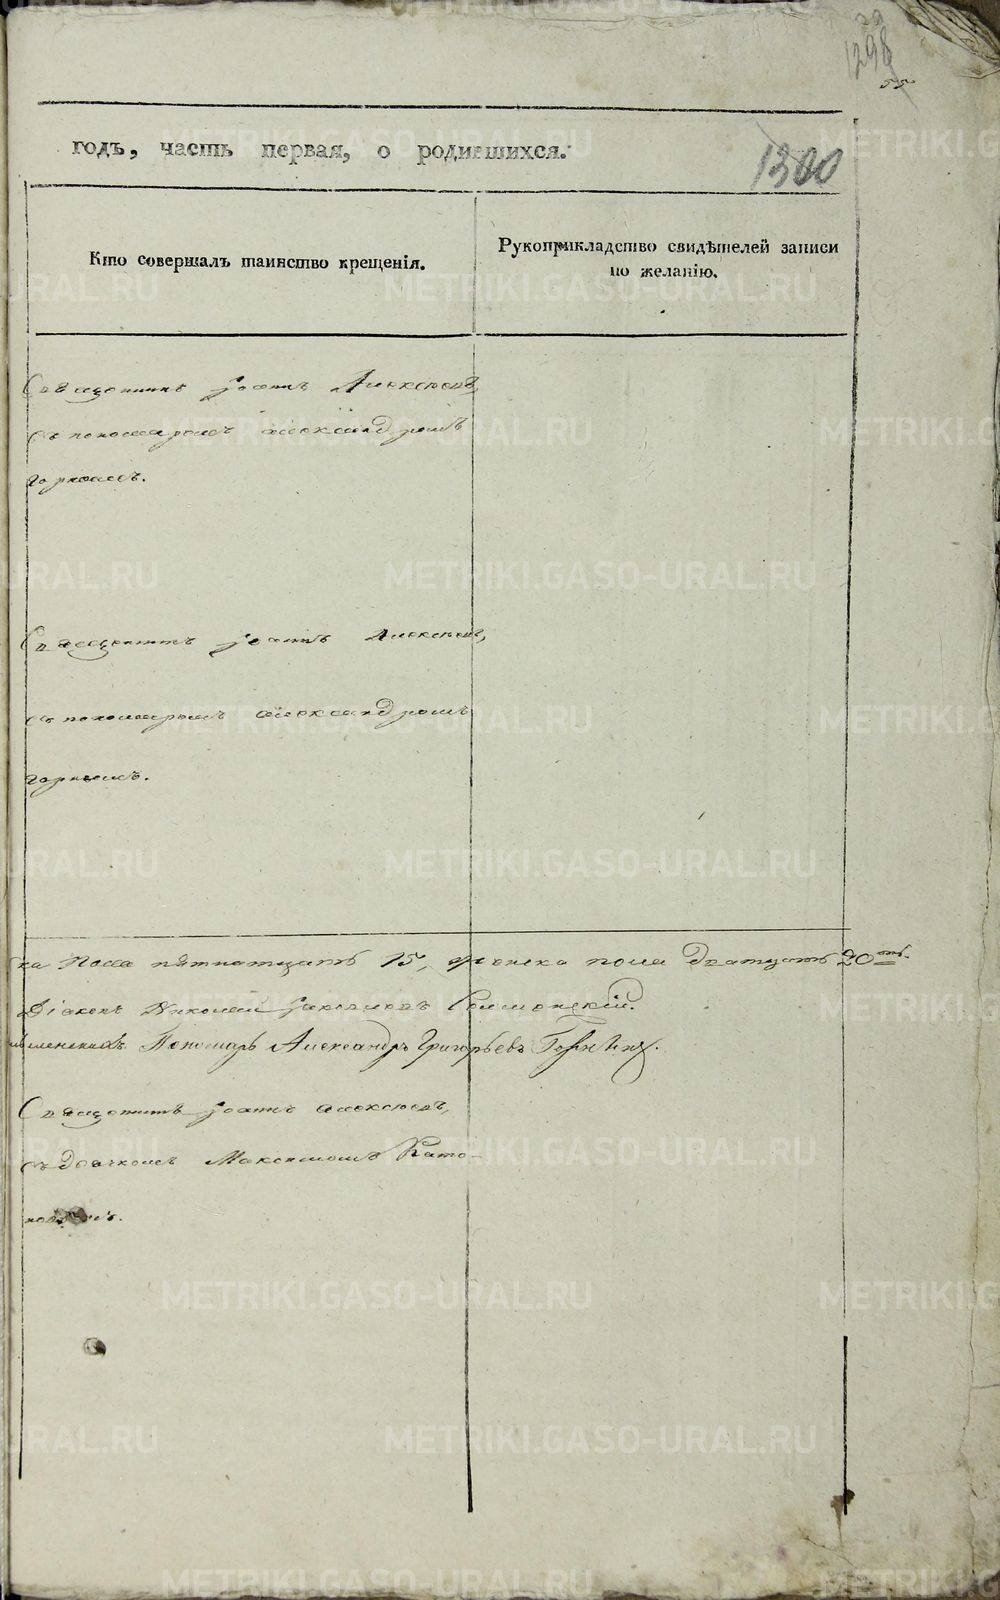 29
1298
55
годъ, часть первая, о родившихся.
1300
Кто совершалъ таинство крещенія.
Рукоприкладство свидѣтелей записи
по желанію.
Священникъ Іоаннъ Алексѣевъ,
съ пономаремъ Александромъ
Горнымъ.
Священникъ Іоаннъ Алексѣевъ,
съ пономаремъ Александромъ
Горнымъ.
пола пятнатцать 15, женска пола дватцать 20ть.
Діаконъ Николай Іаковлевъ
Пономарь Александръ Григорьевъ
Священникъ Іоаннъ Алексѣевъ,
съ дьячкомъ Максимомъ
METRIKI.GASO-URAL.RU